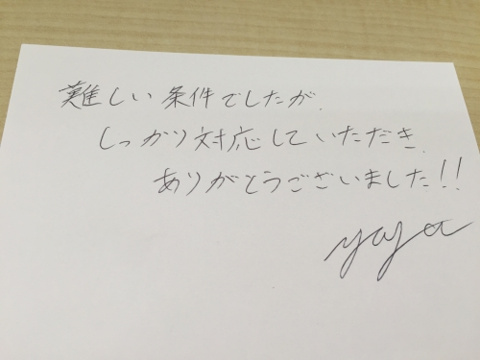 難しい条件でしたが、
しっかり対応していただき、
ありがとうございました!!
yaya